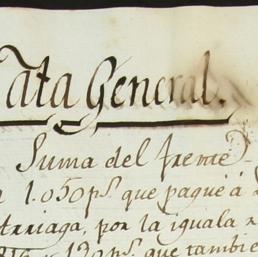 Data General.
Suma del frente
1.050 p.s que pague á
Arriaga, por la iguala
120 p.s que tambie